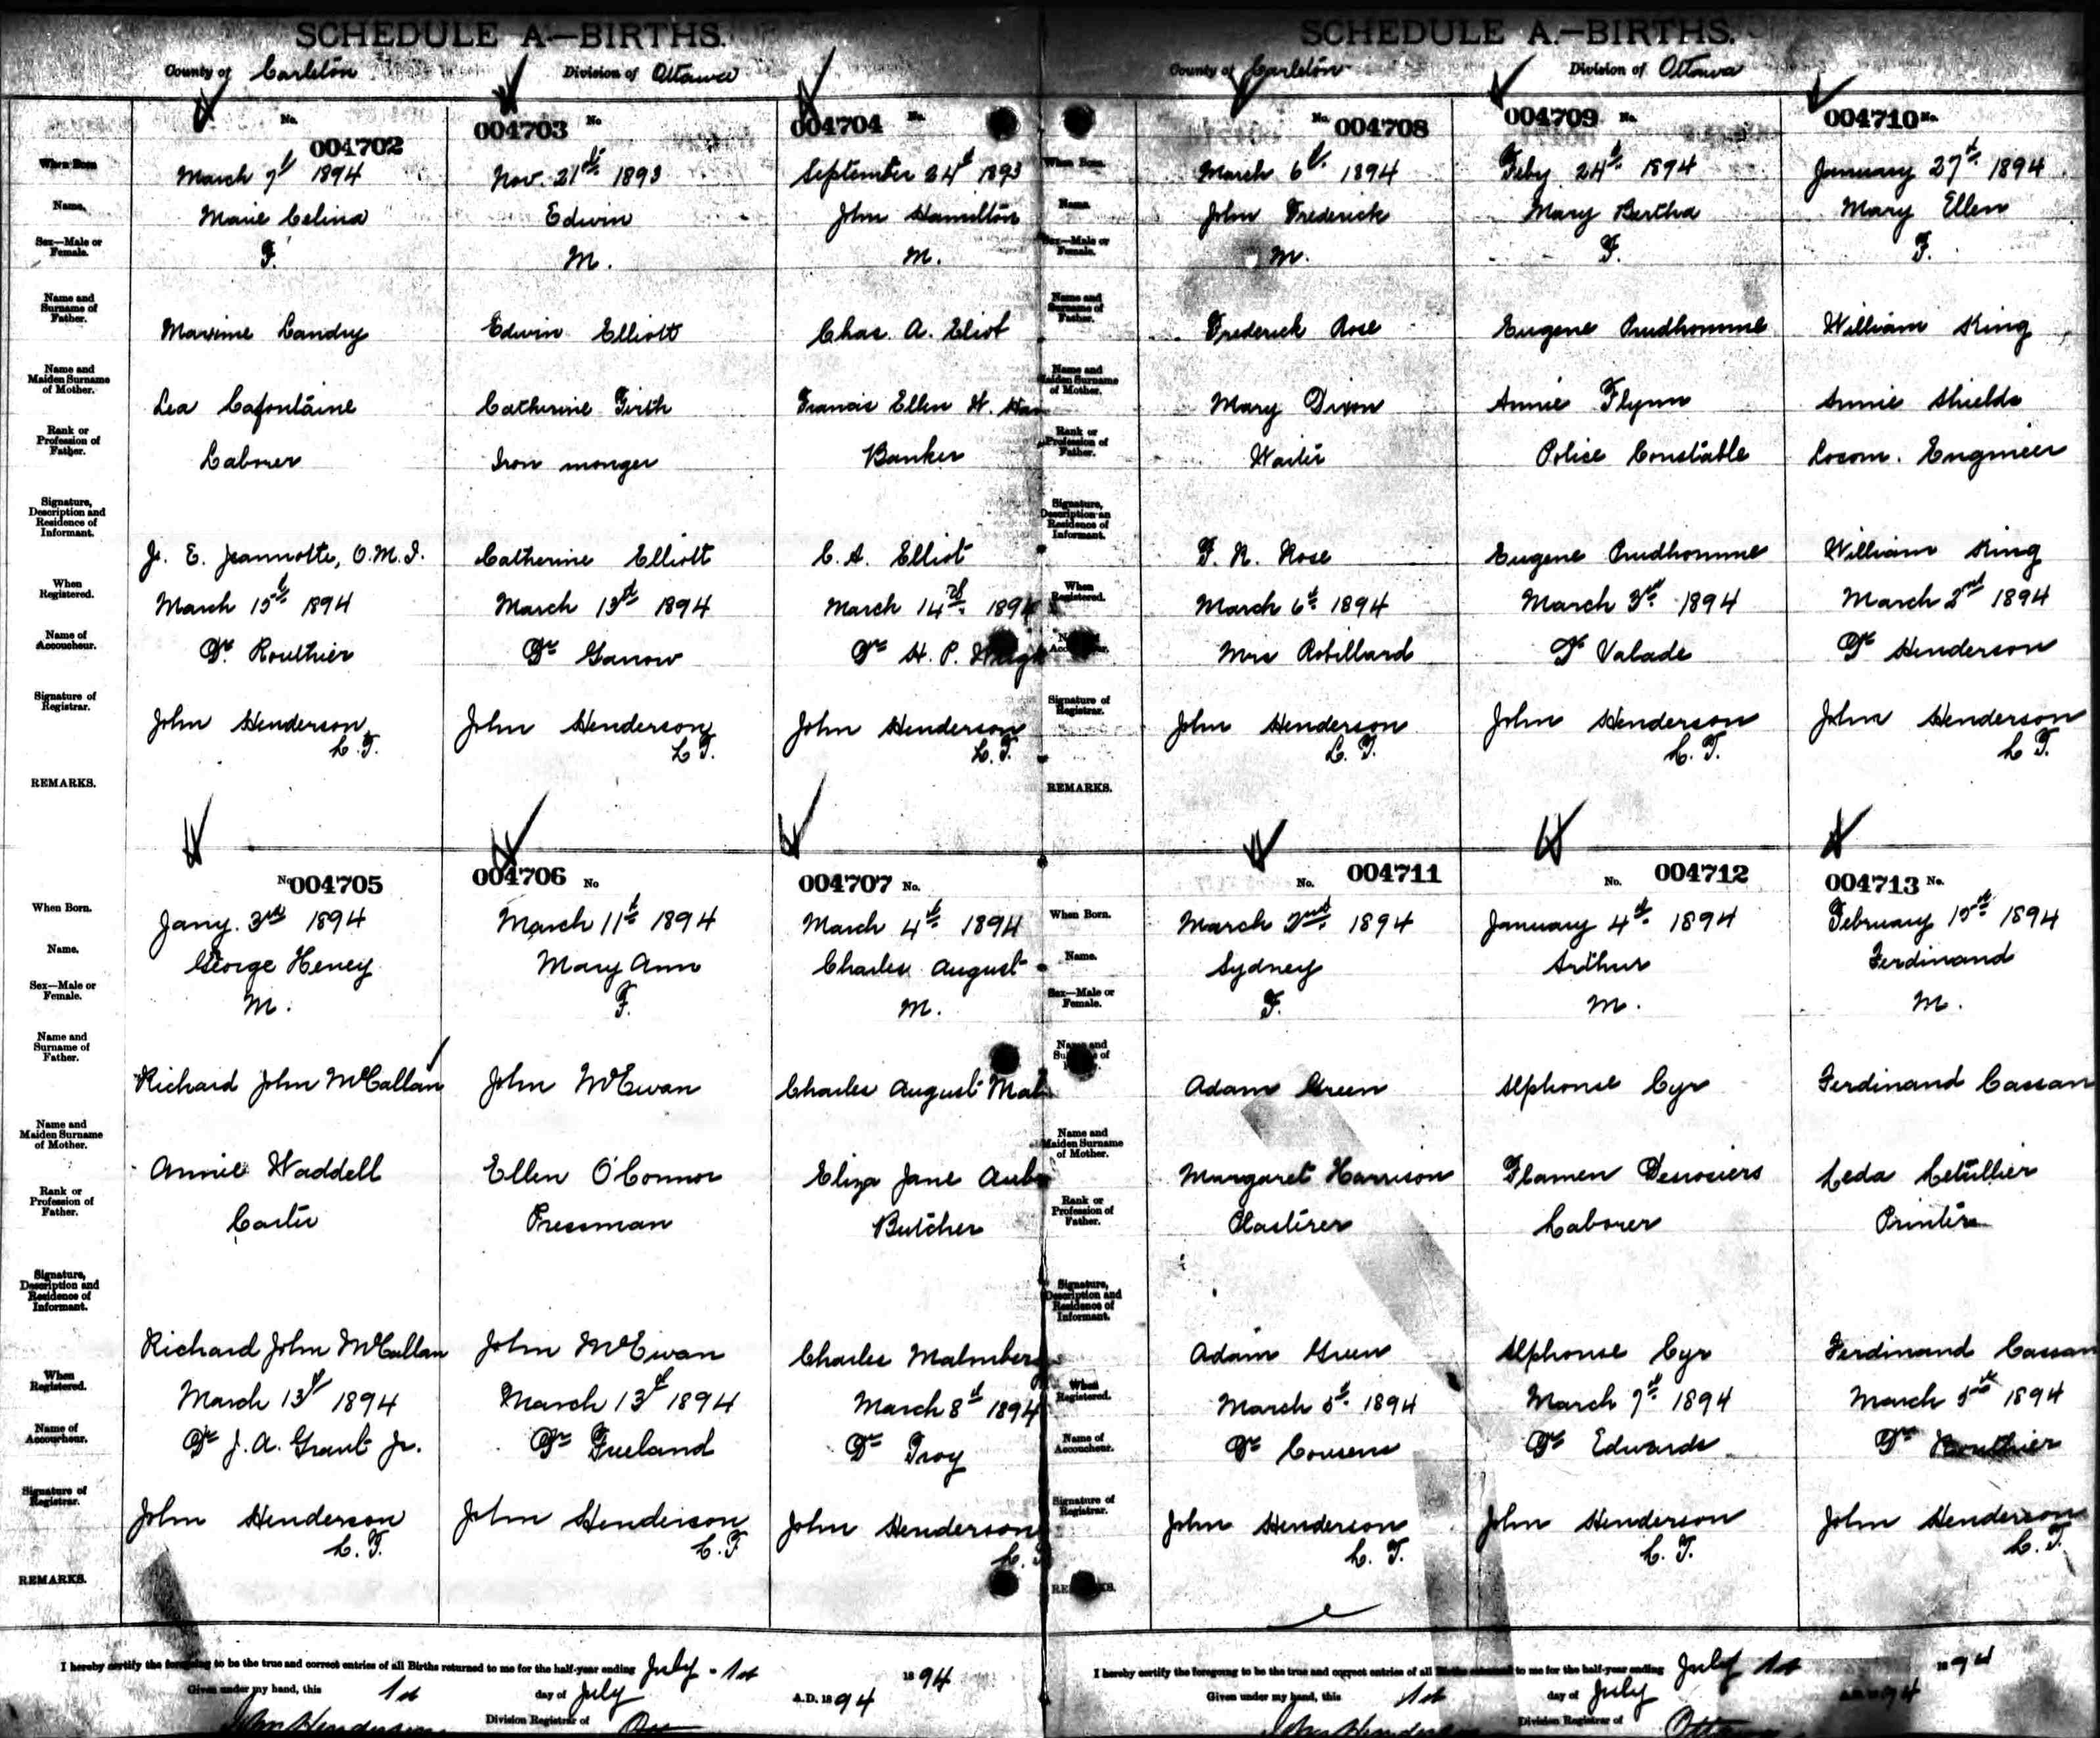 SCHEDULE A.—BIRTHS.
County of Carleton Division of Ottawa
No. 004702
When Born March 7th 1894
Name. Marie Celina
Sex—Male or Female. F.
Name and Surname of Father. Maxime Landry
Name and Maiden Surname of Mother. Lea Lafontaine
Rank or Profession of Father. Laborer
Signature, Description and Residence of Informant. J. E. Jeannotte, O.M.I.
When Registered. March 15th 1894
Name of Accoucheur. Dr Routhier
Signature of Registrar. John Henderson
REMARKS.
004703 No
Nov. 21st 1893
Edwin
M.
Edwin Elliott
Catherine Firth
Iron monger
Catherine Elliott
March 13th 1894
Dr
John Henderson
004704 No.
September 24th 1893
John Hamilton
M.
Chas. A. Eliot
Francis Ellen H.
Banker
C. A. Elliot
March 14th 1894
Dr H. P.
John Henderson
No 004705
When Born. Jany. 3rd 1894
Name. George Heney
Sex—Male or Female. M.
Name and Surname of Father. Richard John McCallan
Name and Maiden Surname of Mother. Annie Waddell
Rank or Profession of Father. Carter
Signature, Description and Residence of Informant. Richard John McCallan
When Registered. March 13th 1894
Name of Accoucheur. Dr J. A. Grant Jr.
Signature of Registrar. John Henderson
REMARKS.
004706 No
March 11th 1894
Mary Ann
F.
John McEwan
Ellen O'Connor
Pressman
John McEwan
March 13th 1894
Dr Freeland
John Henderson
004707 No.
March 4th 1894
Charles August
M.
Charles August
Eliza Jane
Butcher
Charles Malmberg
March 8th 1894
Dr Troy
John Henderson
I hereby certify the foregoing to be the true and correct entries of all Births returned to me for the half-year ending July 1st 1894
Given under my hand, this 1st day of July A.D. 1894
John Henderson Division Registrar of
SCHEDULE A.—BIRTHS.
County of Carleton Division of Ottawa
No. 004708
When Born. March 6th 1894
Name. John Frederick
Sex—Male or Female. M.
Name and Surname of Father. Frederick Rose
Name and Maiden Surname of Mother. Mary Dixon
Rank or Profession of Father. Waiter
Signature, Description and Residence of Informant. F. R. Rose
When Registered. March 6th 1894
Mrs Robillard
Signature of Registrar. John Henderson
REMARKS.
004709 No.
Feby. 24th 1894
Mary Bertha
F.
Eugene Prudhomme
Annie Flynn
Police Constable
Eugene Prudhomme
March 3rd 1894
Dr Valade
John Henderson
004710 No.
January 27th 1894
Mary Ellen
F.
William King
Annie Shields
Locom. Engineer
William King
March 2nd 1894
Dr Henderson
John Henderson
No. 004711
When Born. March 2nd 1894
Name. Sydney
Sex—Male or Female. F.
Adam Green
Name and Maiden Surname of Mother. Margaret Harrison
Rank or Profession of Father. Plasterer
Signature, Description and Residence of Informant. Adam Green
When Registered. March 5th 1894
Name of Accoucheur. Dr Cousens
Signature of Registrar. John Henderson
No. 004712
January 4th 1894
Arthur
M.
Alphonse Cyr
Flamen Desrosiers
Laborer
Alphonse Cyr
March 7th 1894
Dr Edwards
John Henderson
004713 No.
February 15th 1894
Ferdinand
M.
Ferdinand Cassan
Leda Letellier
Printer
Ferdinand Cassan
March 5th 1894
Dr Routhier
John Henderson
I hereby certify the foregoing to be the true and correct entries of all Births returned to me for the half-year ending July 1st 1894
Given under my hand, this 1st day of July
John Henderson Division Registrar of Ottawa